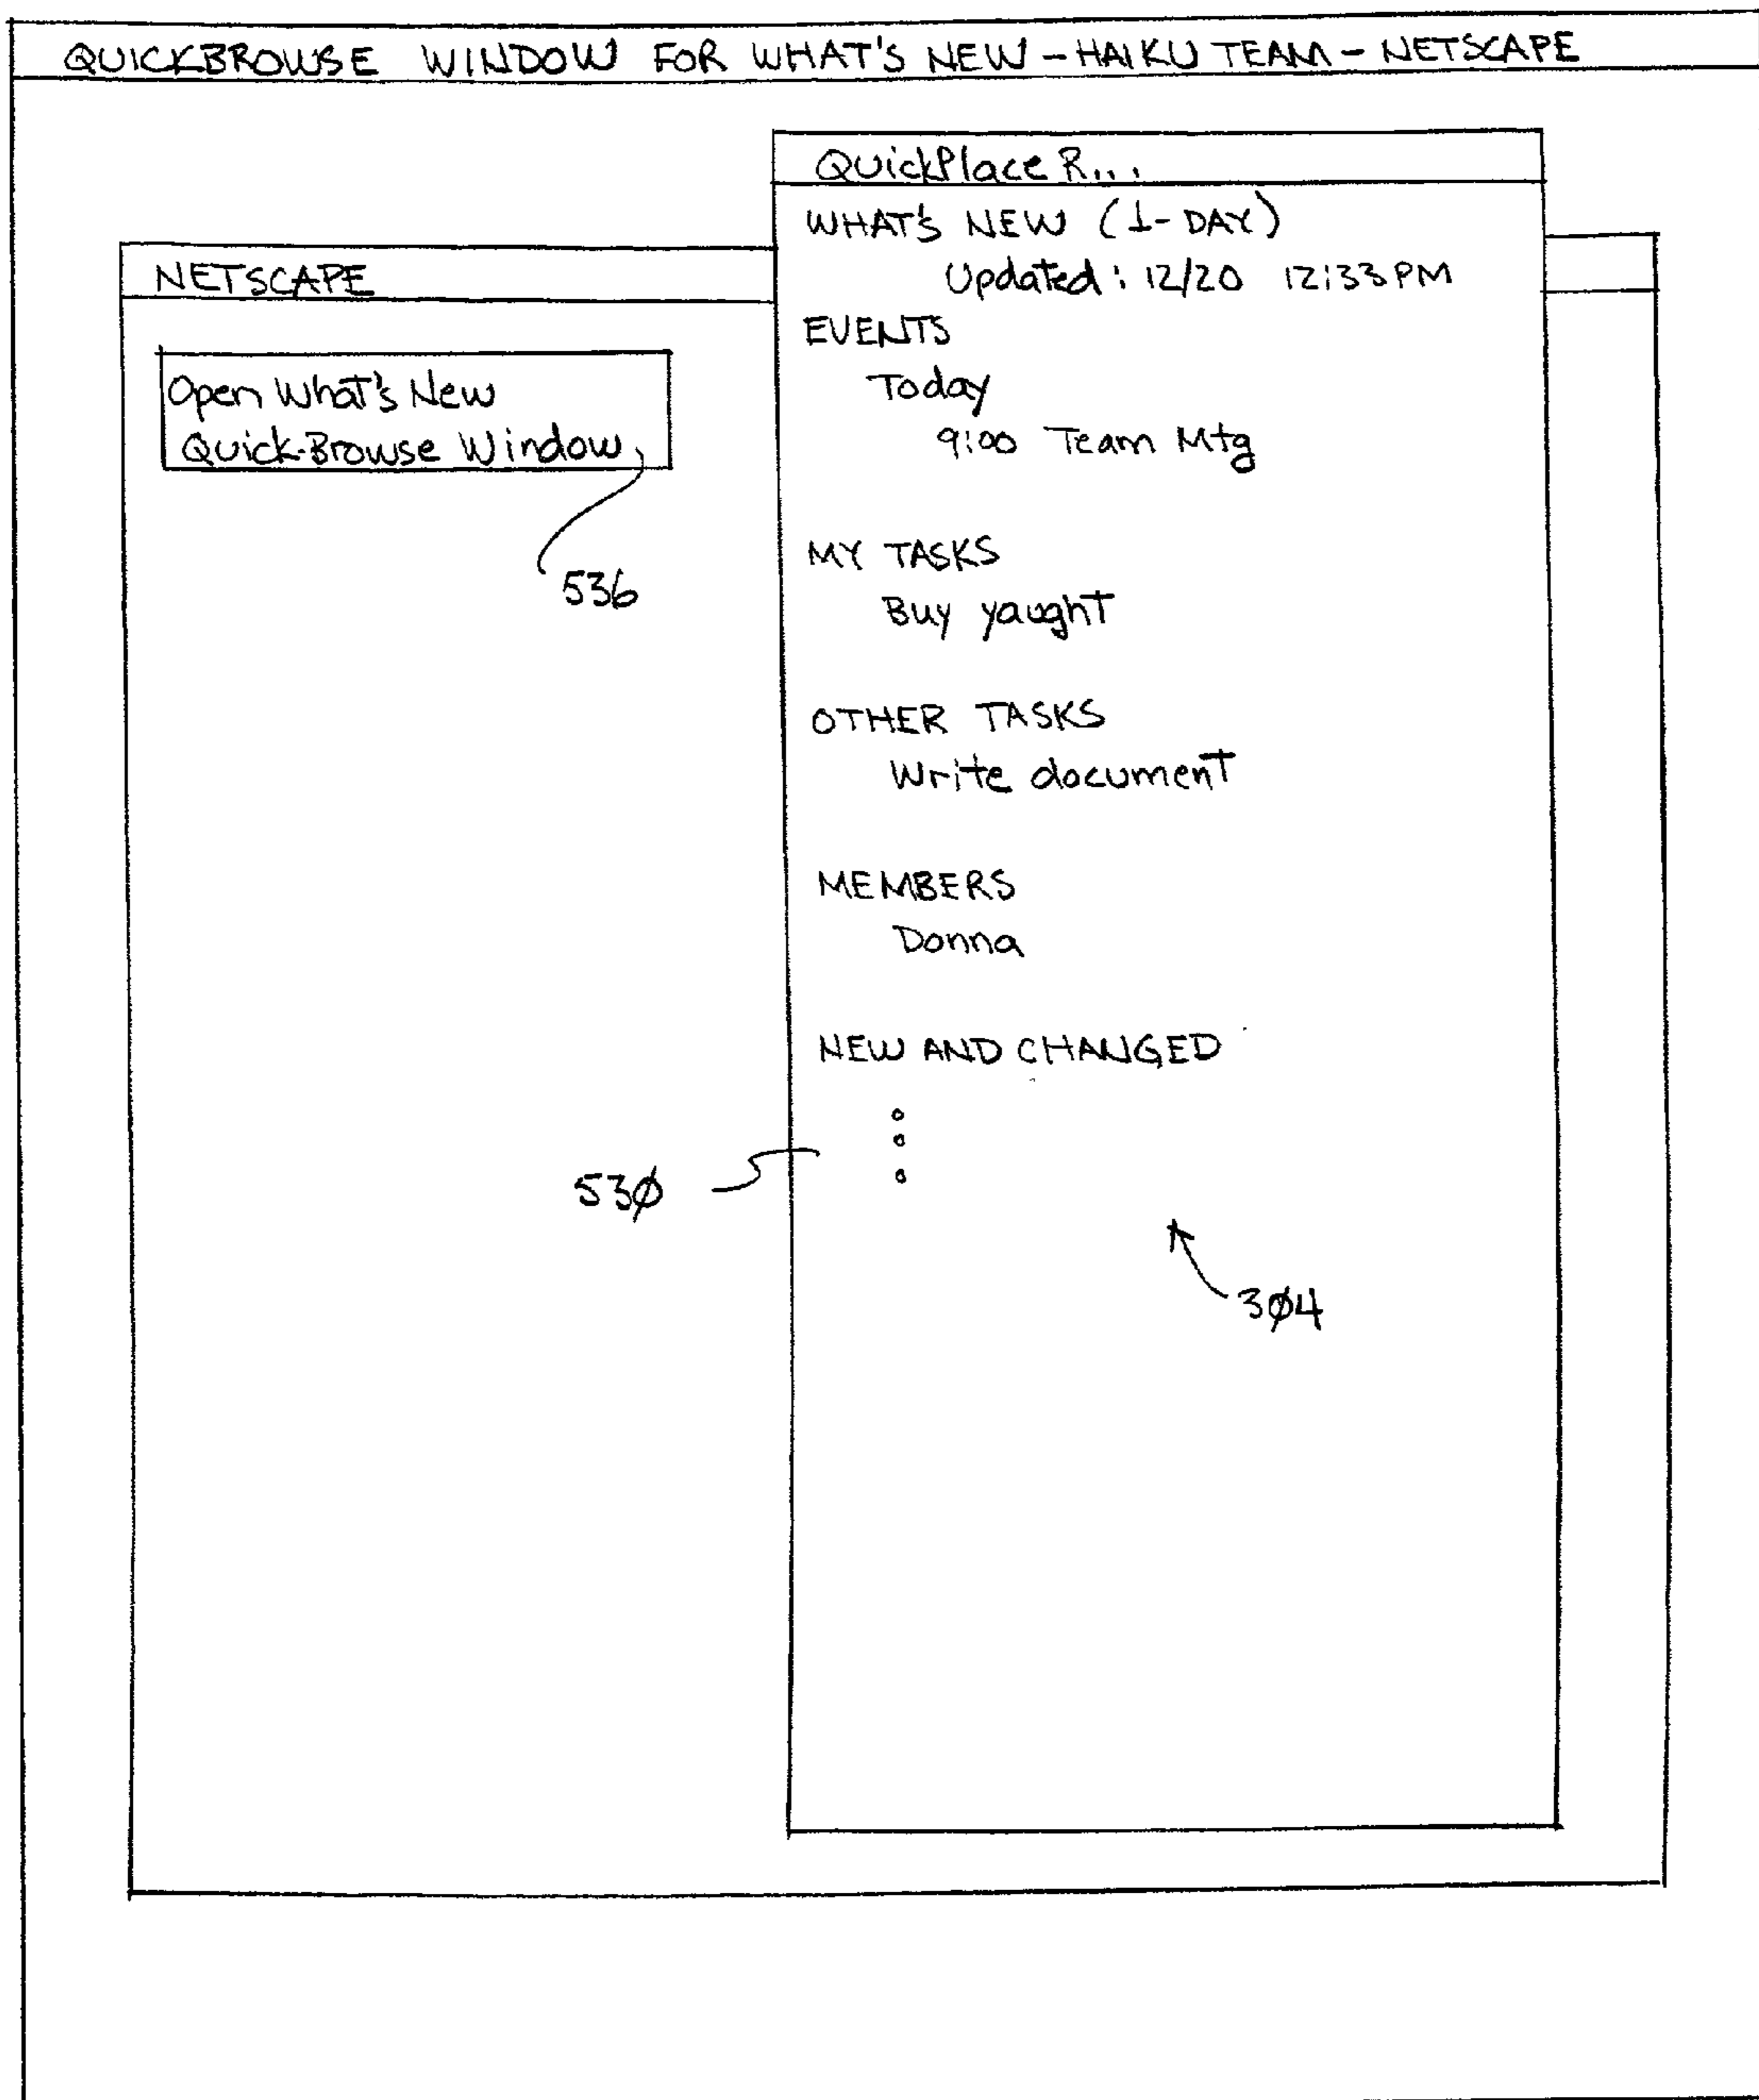 QUICKBROWSE WINDOW FOR WHAT'S NEW - HAIKU TEAM - NETSCAPE
NETSCAPE
Open What's New
Quick-Browse Window
536
QuickPlace R...
WHAT'S NEW (1-DAY)
Updated: 12/20 12:33 PM
EVENTS
Today
9:00 Team Mtg
MY TASKS
Buy yaught
OTHER TASKS
Write document
MEMBERS
Donna
NEW AND CHANGED
530
304